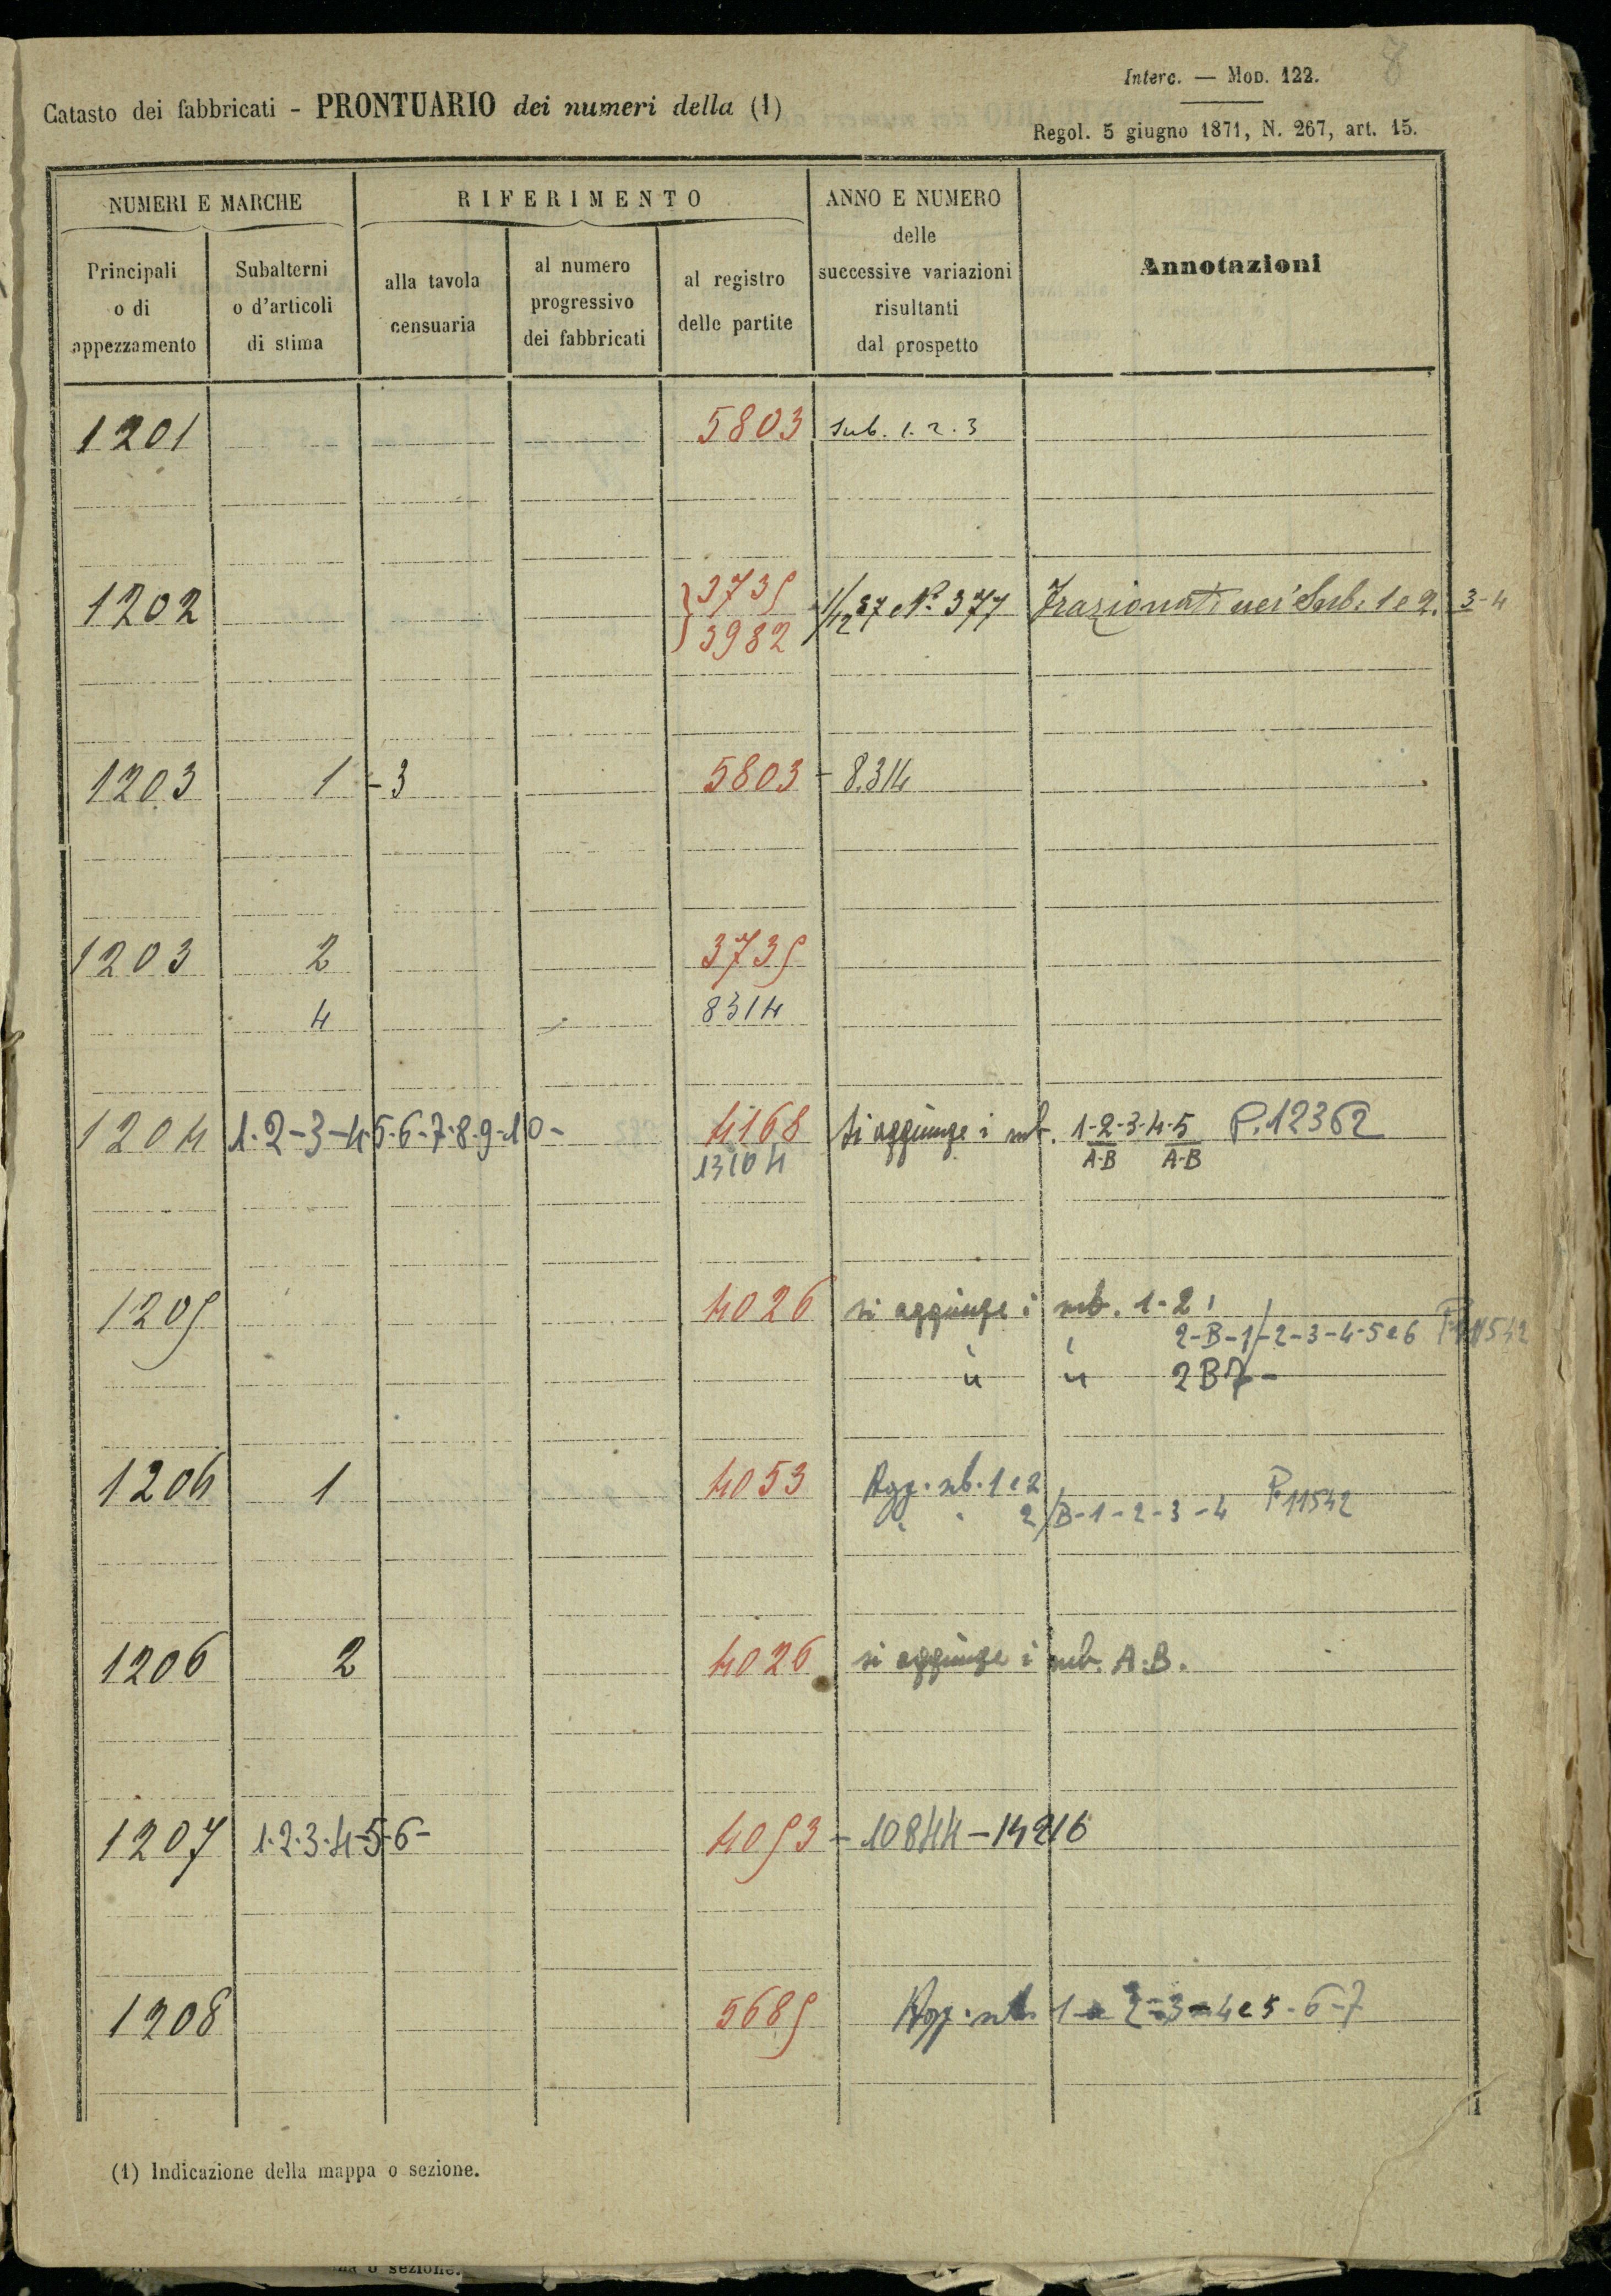 Interc. — Mod. 122.
8
Catasto dei fabbricati - PRONTUARIO dei numeri della (1)
Regol. 5 giugno 1871, N. 267, art. 15.
NUMERI E MARCHE
RIFERIMENTO
ANNO E NUMERO
delle
successive variazioni
risultanti
dal prospetto
Annotazioni
Principali
o di
appezzamento
Subalterni
o d'articoli
di stima
alla tavola
censuaria
al numero
progressivo
dei fabbricati
al registro
delle partite
1201 5803 sub. 1. 2. 3
1202 3735 1/12 37 N° 377 Frazionati nei Sub. 1 e 2. 3-4
3982
1203 1 - 3 5803 - 8314
1203 2 3735
4 8314
1204 1-2-3-4-5-6-7-8-9-10- 4168 si aggiunge i sub. 1-2-3-4-5 P. 12362
13104 A-B A-B
1205 4026 si aggiunge i sub. 1-2
2-B-1-2-3-4-5e6
" " 2B7-
1206 1 4053 Agg. sub. 1 e 2
" " 2/B-1-2-3-4 P. 11542
1206 2 4026 si aggiunge i sub. A.B.
1207 1-2-3-4-5-6- 4053 - 10844 - 14216
1208 5685 Agg. sub. 1 2-3-4e5-6-7
(1) Indicazione della mappa o sezione.
o sezione.